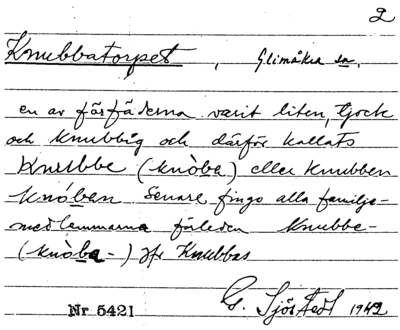 2
Knubbatorpet, Glimåkra sn,
en av förfäderna varit liten, tjock
och knubbig och därför kallats
Knubbe (knòba) eller Knubben
knóben. Senare fingo alla familje-
medlemmarna förleden Knubbe-
(knòba-) jfr Knubbas
G. Sjöstedt 1942
Nr 5421